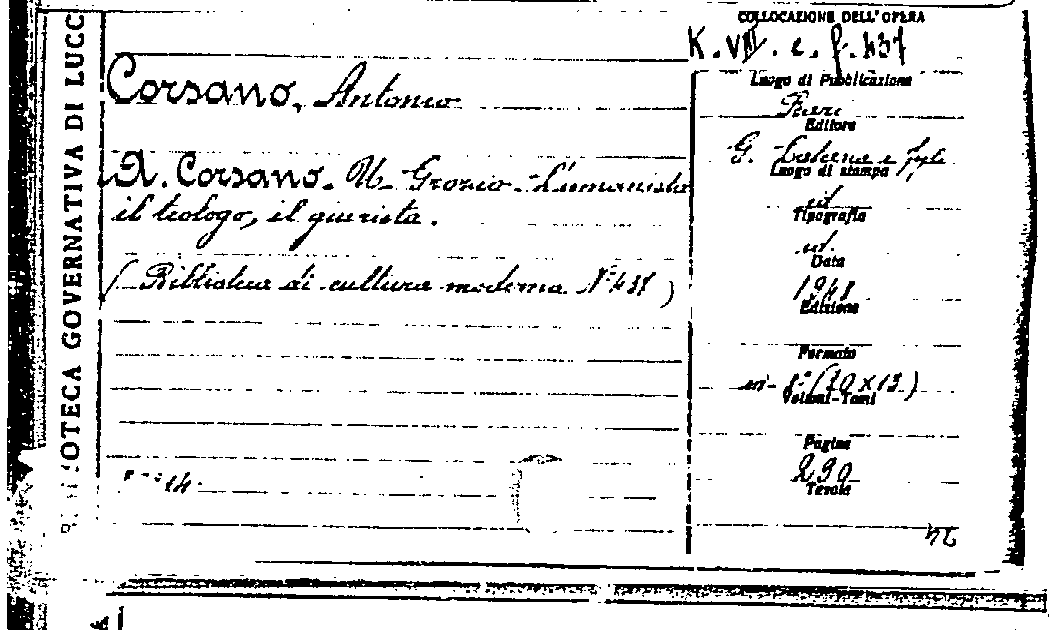 BIBLIOTECA GOVERNATIVA DI LUCC
COLLOCAZIONE DELL'OPERA
K. VIII. e. f. 437
Corsano, Antonio
A. Corsano. U. Grozio. L'umanista
il teologo, il giurista.
(Biblioteca di cultura moderna N° 438)
14.
Luogo di Pubblicazione
Bari
Editore
G. Laterza e figli
Luogo di stampa
id
Tipografia
id.
Data
1948
Edizione
Formato
in-8° (20 x 13)
Volumi-Tomi
Pagine
290
Tavole